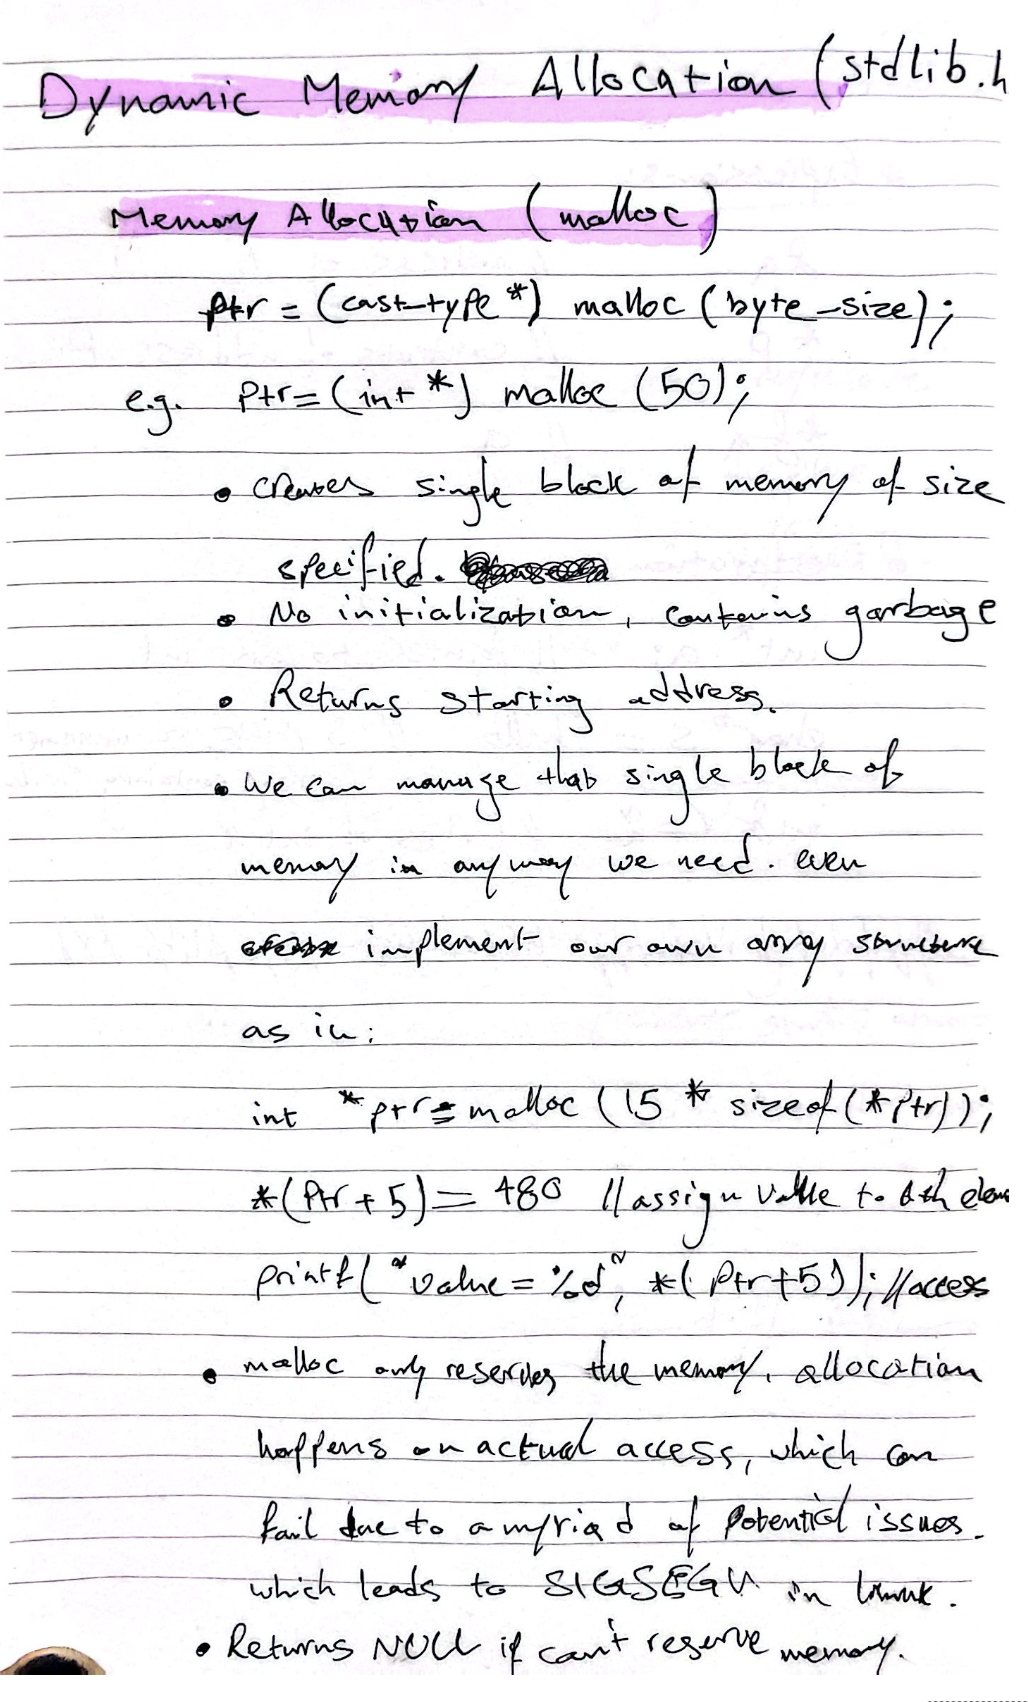 Dynamic Memory Allocation (stdlib.h
Memory Allocation (malloc)
ptr = (cast-type*) malloc (byte-size);
e.g. ptr = (int *) malloc (50);
• Creates single block of memory of size
specified.
• No initialization, contains garbage
• Returns starting address.
• We can manage that single block of
memory in any way we need. even
implement our own array structure
as in:
int *ptr = malloc (15 * sizeof(*ptr));
*(ptr + 5) = 480 //assign value to 6th elem
printf("value = %d", *(ptr+5)); //access
• malloc only reserves the memory. allocation
happens on actual access, which can
fail due to a myriad of potential issues.
which leads to SIGSEGV in linux.
• Returns NULL if can't reserve memory.